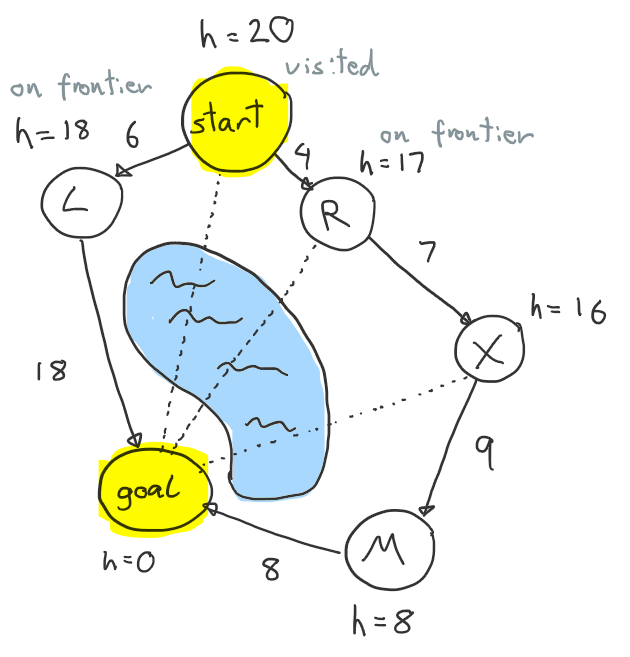 h = 20
visited
on frontier
h = 18
6
start
4
on frontier
h = 17
L
R
7
h = 16
X
18
9
goal
h=0
8
M
h = 8